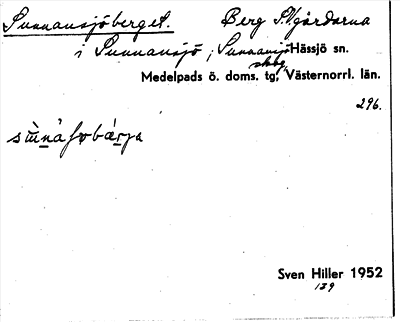 Sunnansjöberget. Berg S.V. gårdarna
i Sunnansjö, Sunnansjö Hässjö sn.
skbg,
Medelpads ö. doms. tg, Västernorrl. län.
296.
Sven Hiller 1952
139